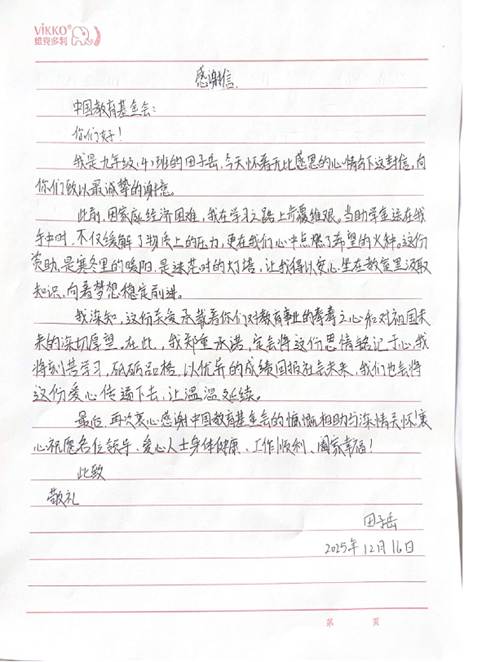 VIKKO®
维克多利
感谢信
中国教育基金会:
你们好!
我是九年级(4)班的田子岳,今天怀着无比感恩的心情写下这封信,向
你们致以最诚挚的谢意。
此前,因家庭经济困难,我在学习之路上步履维艰,当助学金送在我
手中时,不仅缓解了物质上的压力,更在我们心中点燃了希望的火种。这份
资助,是寒冬里的暖阳,是迷茫时的灯塔,让我得以安心坐在教室里汲取
知识,向着梦想稳定前进。
我深知,这份关爱承载着你们对教育事业的赤青之心和对祖国未
来的深切愿望。在此,我郑重承诺,定会将这份恩情铭记于心,我
将刻苦学习,砥砺前梧,以优异的成绩回报社会未来,我们也会将
这份爱心传递下去,让温温延续。
最后,再次衷心感谢中国教育基金会的慷慨相助与深情关怀!衷
心祝愿各位领导、爱心人士身体健康、工作顺利、阖家幸福!
此致
敬礼
田子岳
2025年12月16日
第 页